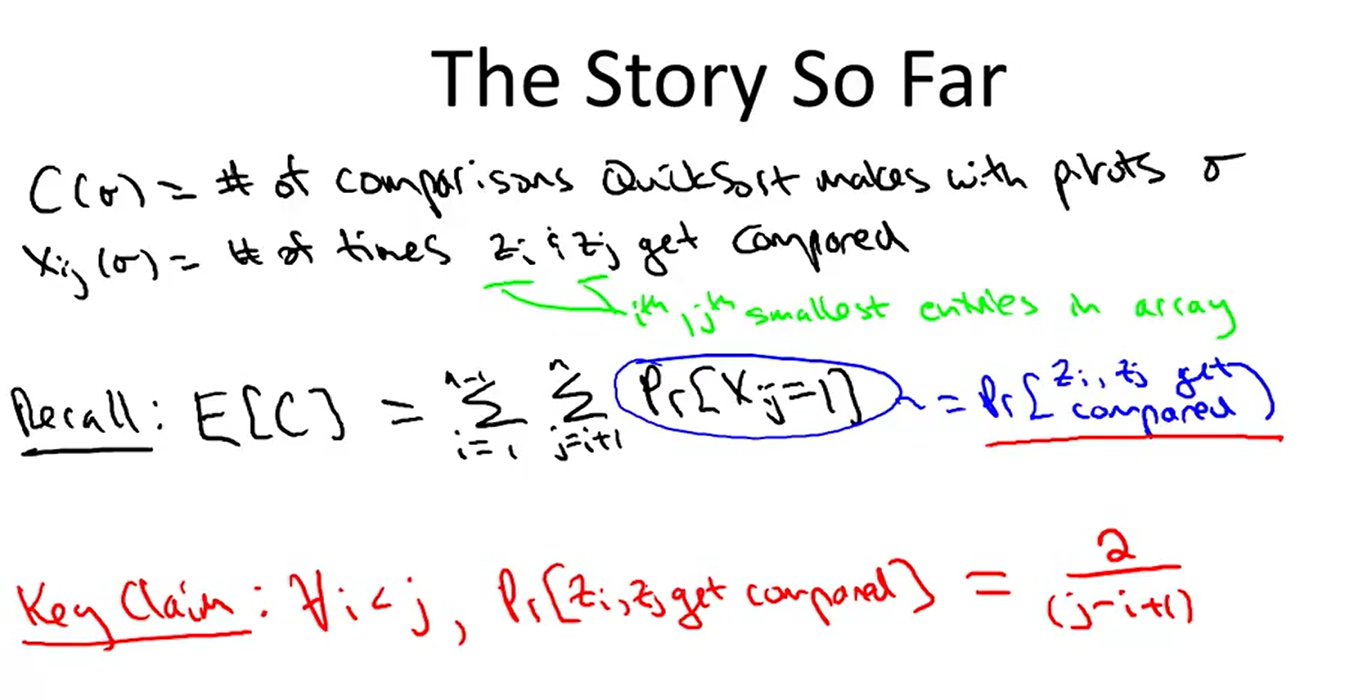 The Story So Far
C(σ) = # of comparisons QuickSort makes with pivots σ
Xij(σ) = # of times zi & zj get compared
ith, jth smallest entries in array
Recall: E[C] = ∑_{i=1}^{n-1} ∑_{j=i+1}^{n} Pr[Xij=1] = Pr[zi, zj get compared]
Key Claim: ∀i<j, Pr[zi, zj get compared] = 2/(j-i+1)